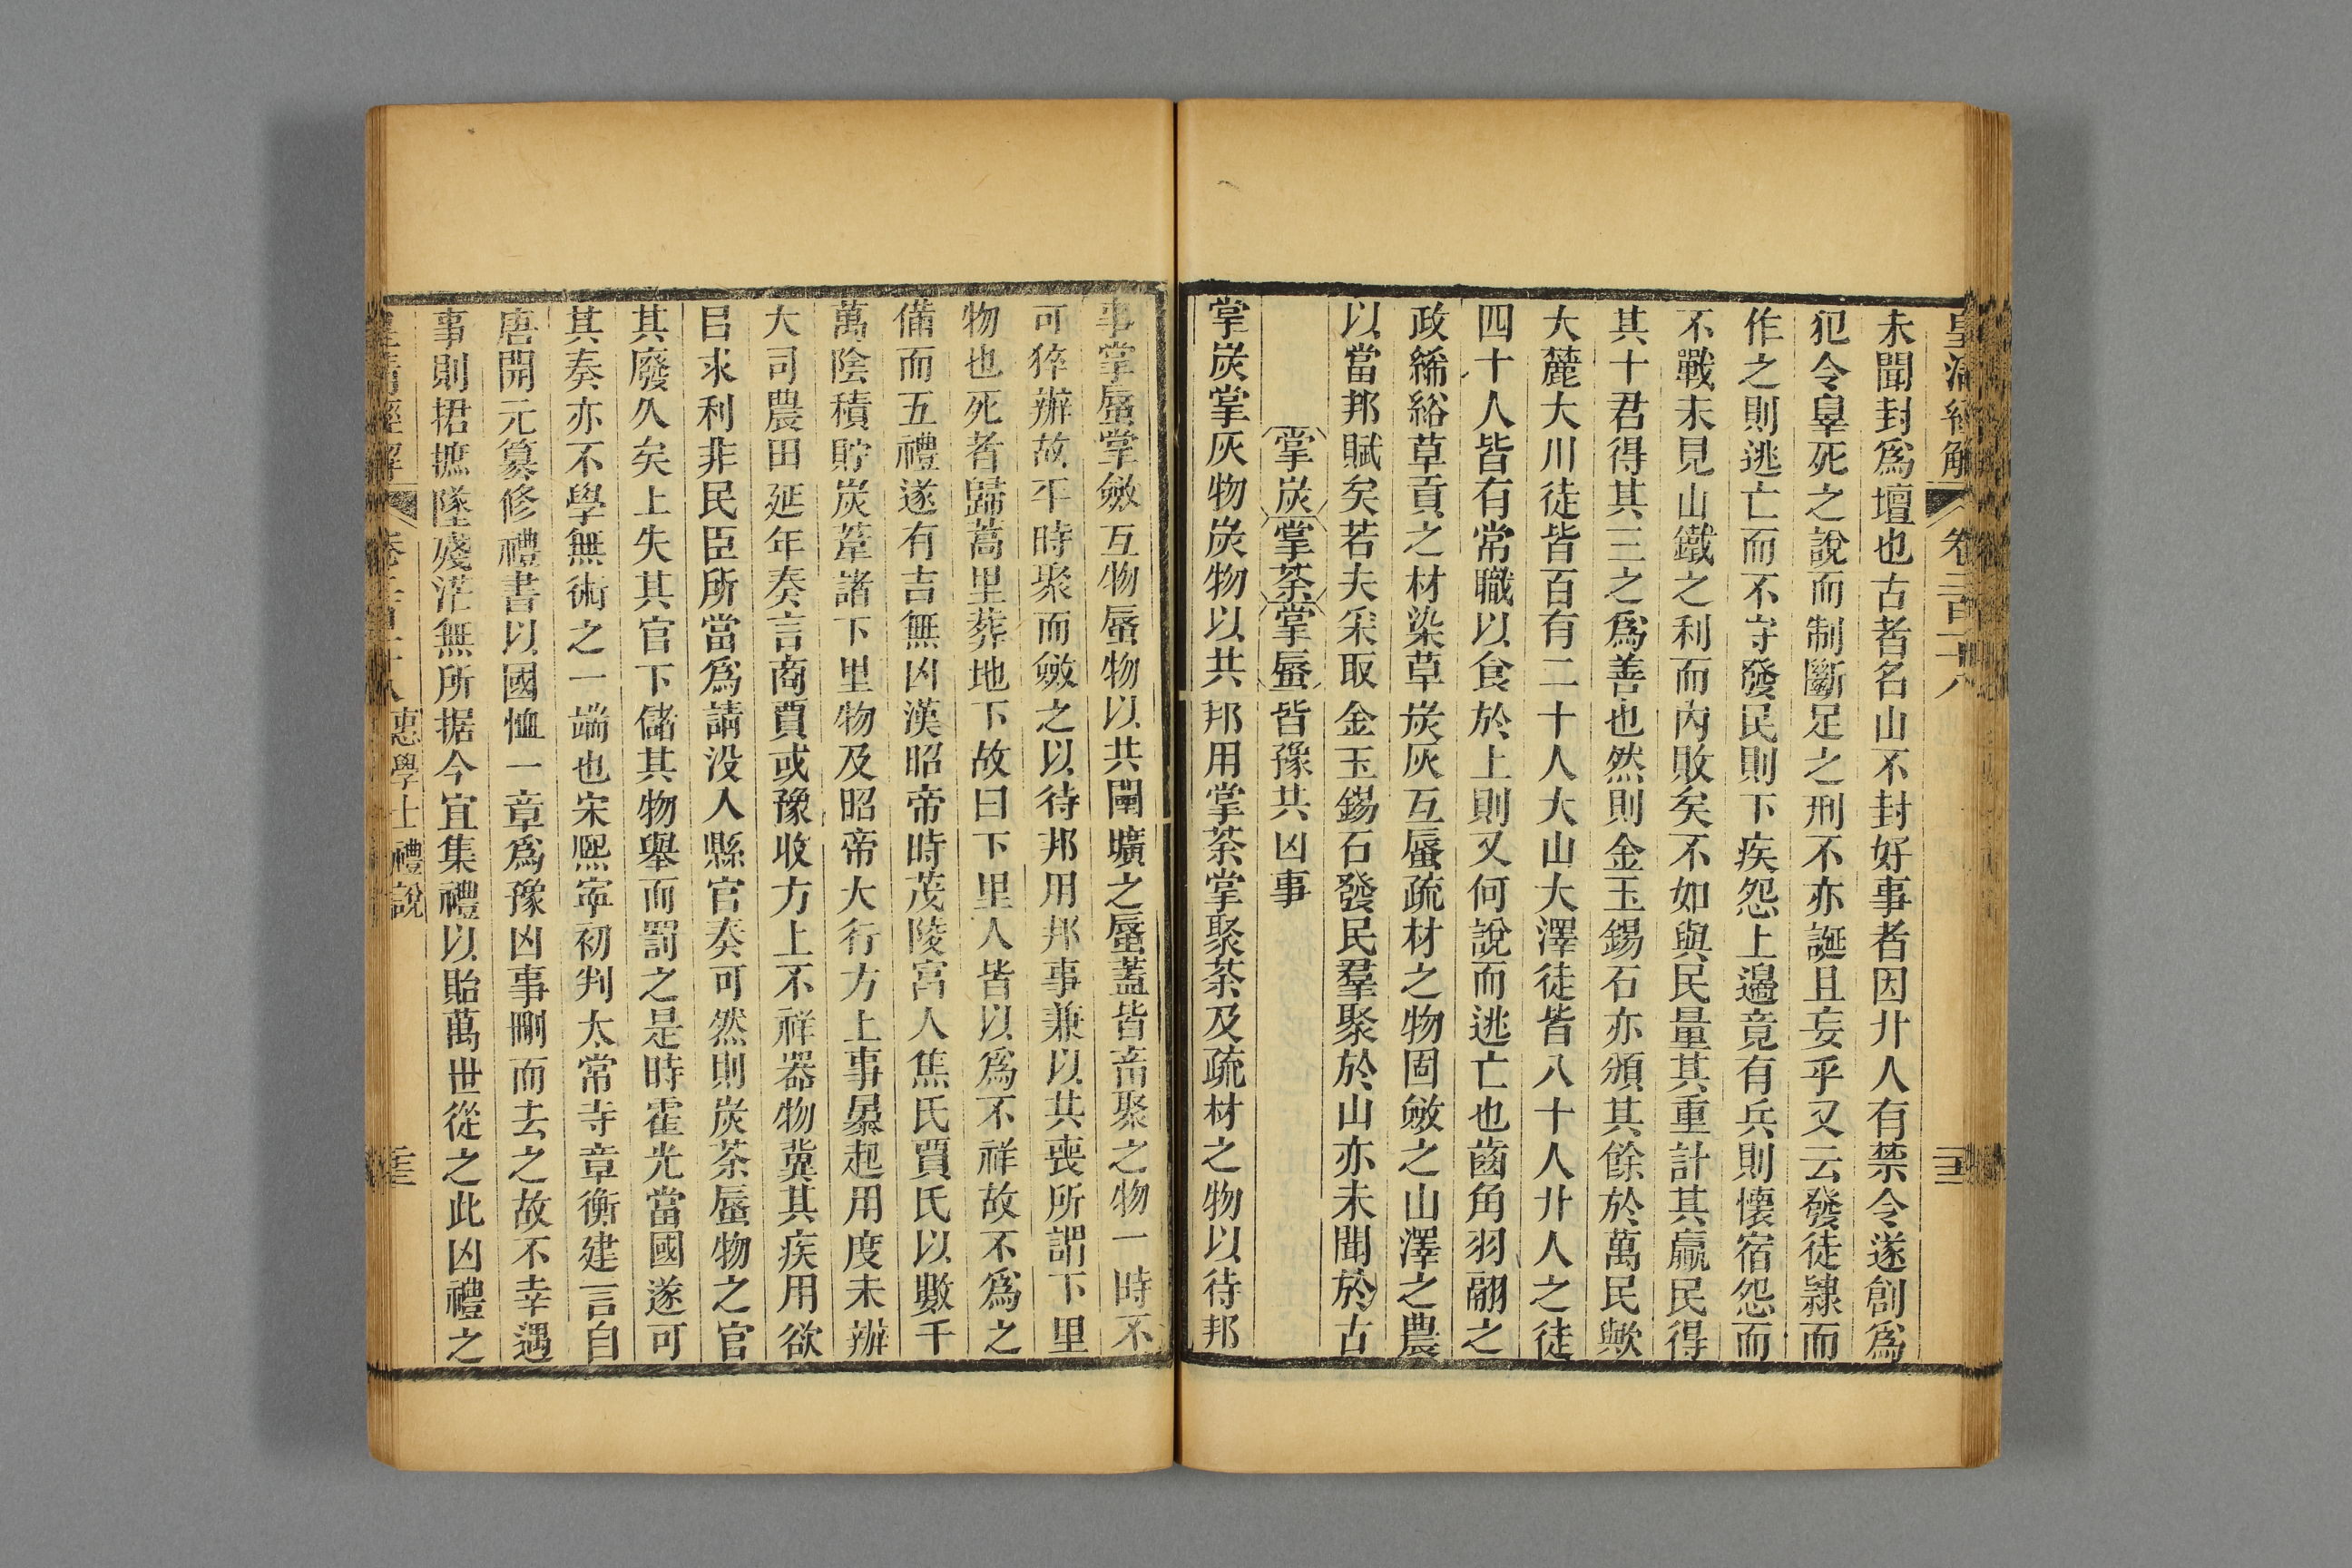 皇清經解 卷二百十八
未聞封爲壇也古者名山不封好事者因廾人有禁令遂創爲
犯令辠死之說而制斷足之刑不亦誕且妄乎又云發徒隸而
作之則逃亡而不守發民則下疾怨上邊竟有兵則懷宿怨而
不戰未見山鐵之利而內敗矣不如與民量其重計其贏民得
其十君得其三之爲善也然則金玉錫石亦頒其餘於萬民歟
大麓大川徒皆百有二十人大山大澤徒皆八十人廾人之徒
四十人皆有常職以食於上則又何說而逃亡也齒角羽翮之
政絺綌草貢之材染草炭灰互蜃疏材之物固斂之山澤之農
以當邦賦矣若夫采取金玉錫石發民羣聚於山亦未聞於古
掌炭掌荼掌蜃皆豫共凶事
掌炭掌灰物炭物以共邦用掌荼掌聚荼及疏材之物以待邦
事掌蜃掌斂互物蜃物以共闉壙之蜃蓋皆畜聚之物一時不
可猝辦故平時聚而斂之以待邦用邦事兼以共喪所謂下里
物也死者歸蒿里葬地下故曰下里人皆以爲不祥故不爲之
備而五禮遂有吉無凶漢昭帝時茂陵富人焦氏賈氏以數千
萬陰積貯炭葦諸下里物及昭帝大行方上事暴起用度未辦
大司農田延年奏言商賈或豫收方上不祥器物冀其疾用欲
㠯求利非民臣所當爲請沒入縣官奏可然則炭荼蜃物之官
其廢久矣上失其官下儲其物舉而罰之是時霍光當國遂可
其奏亦不學無術之一端也宋熙寧初判太常寺章衡建言自
唐開元纂修禮書以國恤一章爲豫凶事刪而去之故不幸遇
事則捃摭墜殘茫無所据今宜集禮以貽萬世從之此凶禮之
皇清經解 卷二百十八 惠學士禮說